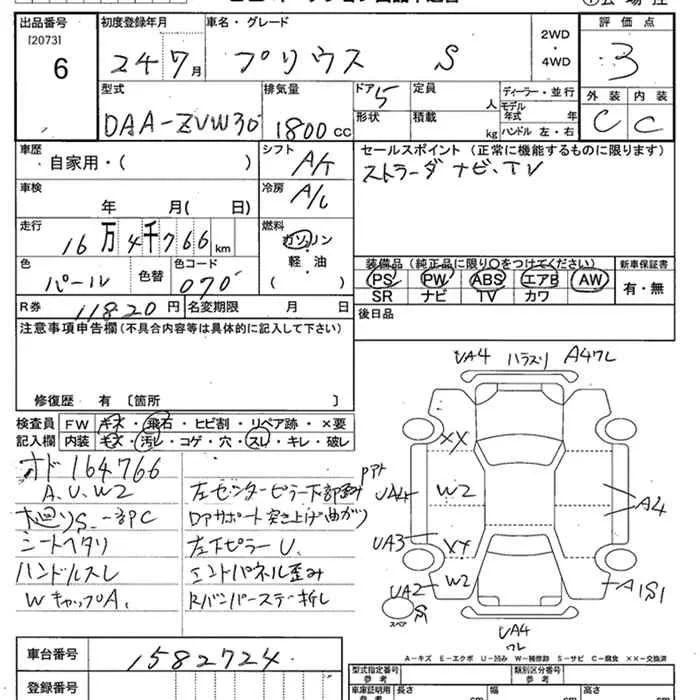 出品番号 初度登録年月 車名・グレード 2WD・4WD 評価点
[2073]
6 24 7月 プリウス S 3
型式 排気量 ドア 5 定員 人 ディーラー・並行 外装 内装
DAA-ZVW30 1800CC 形状 積載 kg モデル年式 年 C C
ハンドル 左・右
車歴 シフト セールスポイント(正常に機能するものに限ります)
自家用・( ) A/T ストラーダ ナビ・TV
車検 冷房
年 月( 日) A/C
走行 燃料
16万4千766km ガソリン
軽・油
( )
色 色替 色コード 装備品(純正品に限り○をつけてください) 新車保証書
パール 070 PS PW ABS エアB AW 有・無
SR ナビ TV カワ
R券 11820円 名変期限 月 日 後日品
注意事項申告欄(不具合内容等は具体的に記入して下さい)
修復歴 有 〔箇所 〕
UA4 ハラスリ A4ワレ
検査員 FW キズ・飛石・ヒビ割・リペア跡・×要
記入欄 内装 キズ・汚レ・コゲ・穴・スレ・キレ・破レ
オド164766
A.U.W2 左センターピラー下部
シートヘタリ 左下ピラーU.
ハンドルスレ エンドパネル歪み
WキャップA. Rバンパーステー折し
XX
UA4 W2 A4
UA3 XX
UA2 W2 A1S1
スペア S
UA4
ワレ
A-キズ E-エクボ U-凹み W-補修跡 S-サビ C-腐食 ××-交換済
車台番号 1582724
登録番号
型式指定番号 類別区分番号
参考 参考
車庫証明用 長さ 幅 高さ
参考 cm cm cm